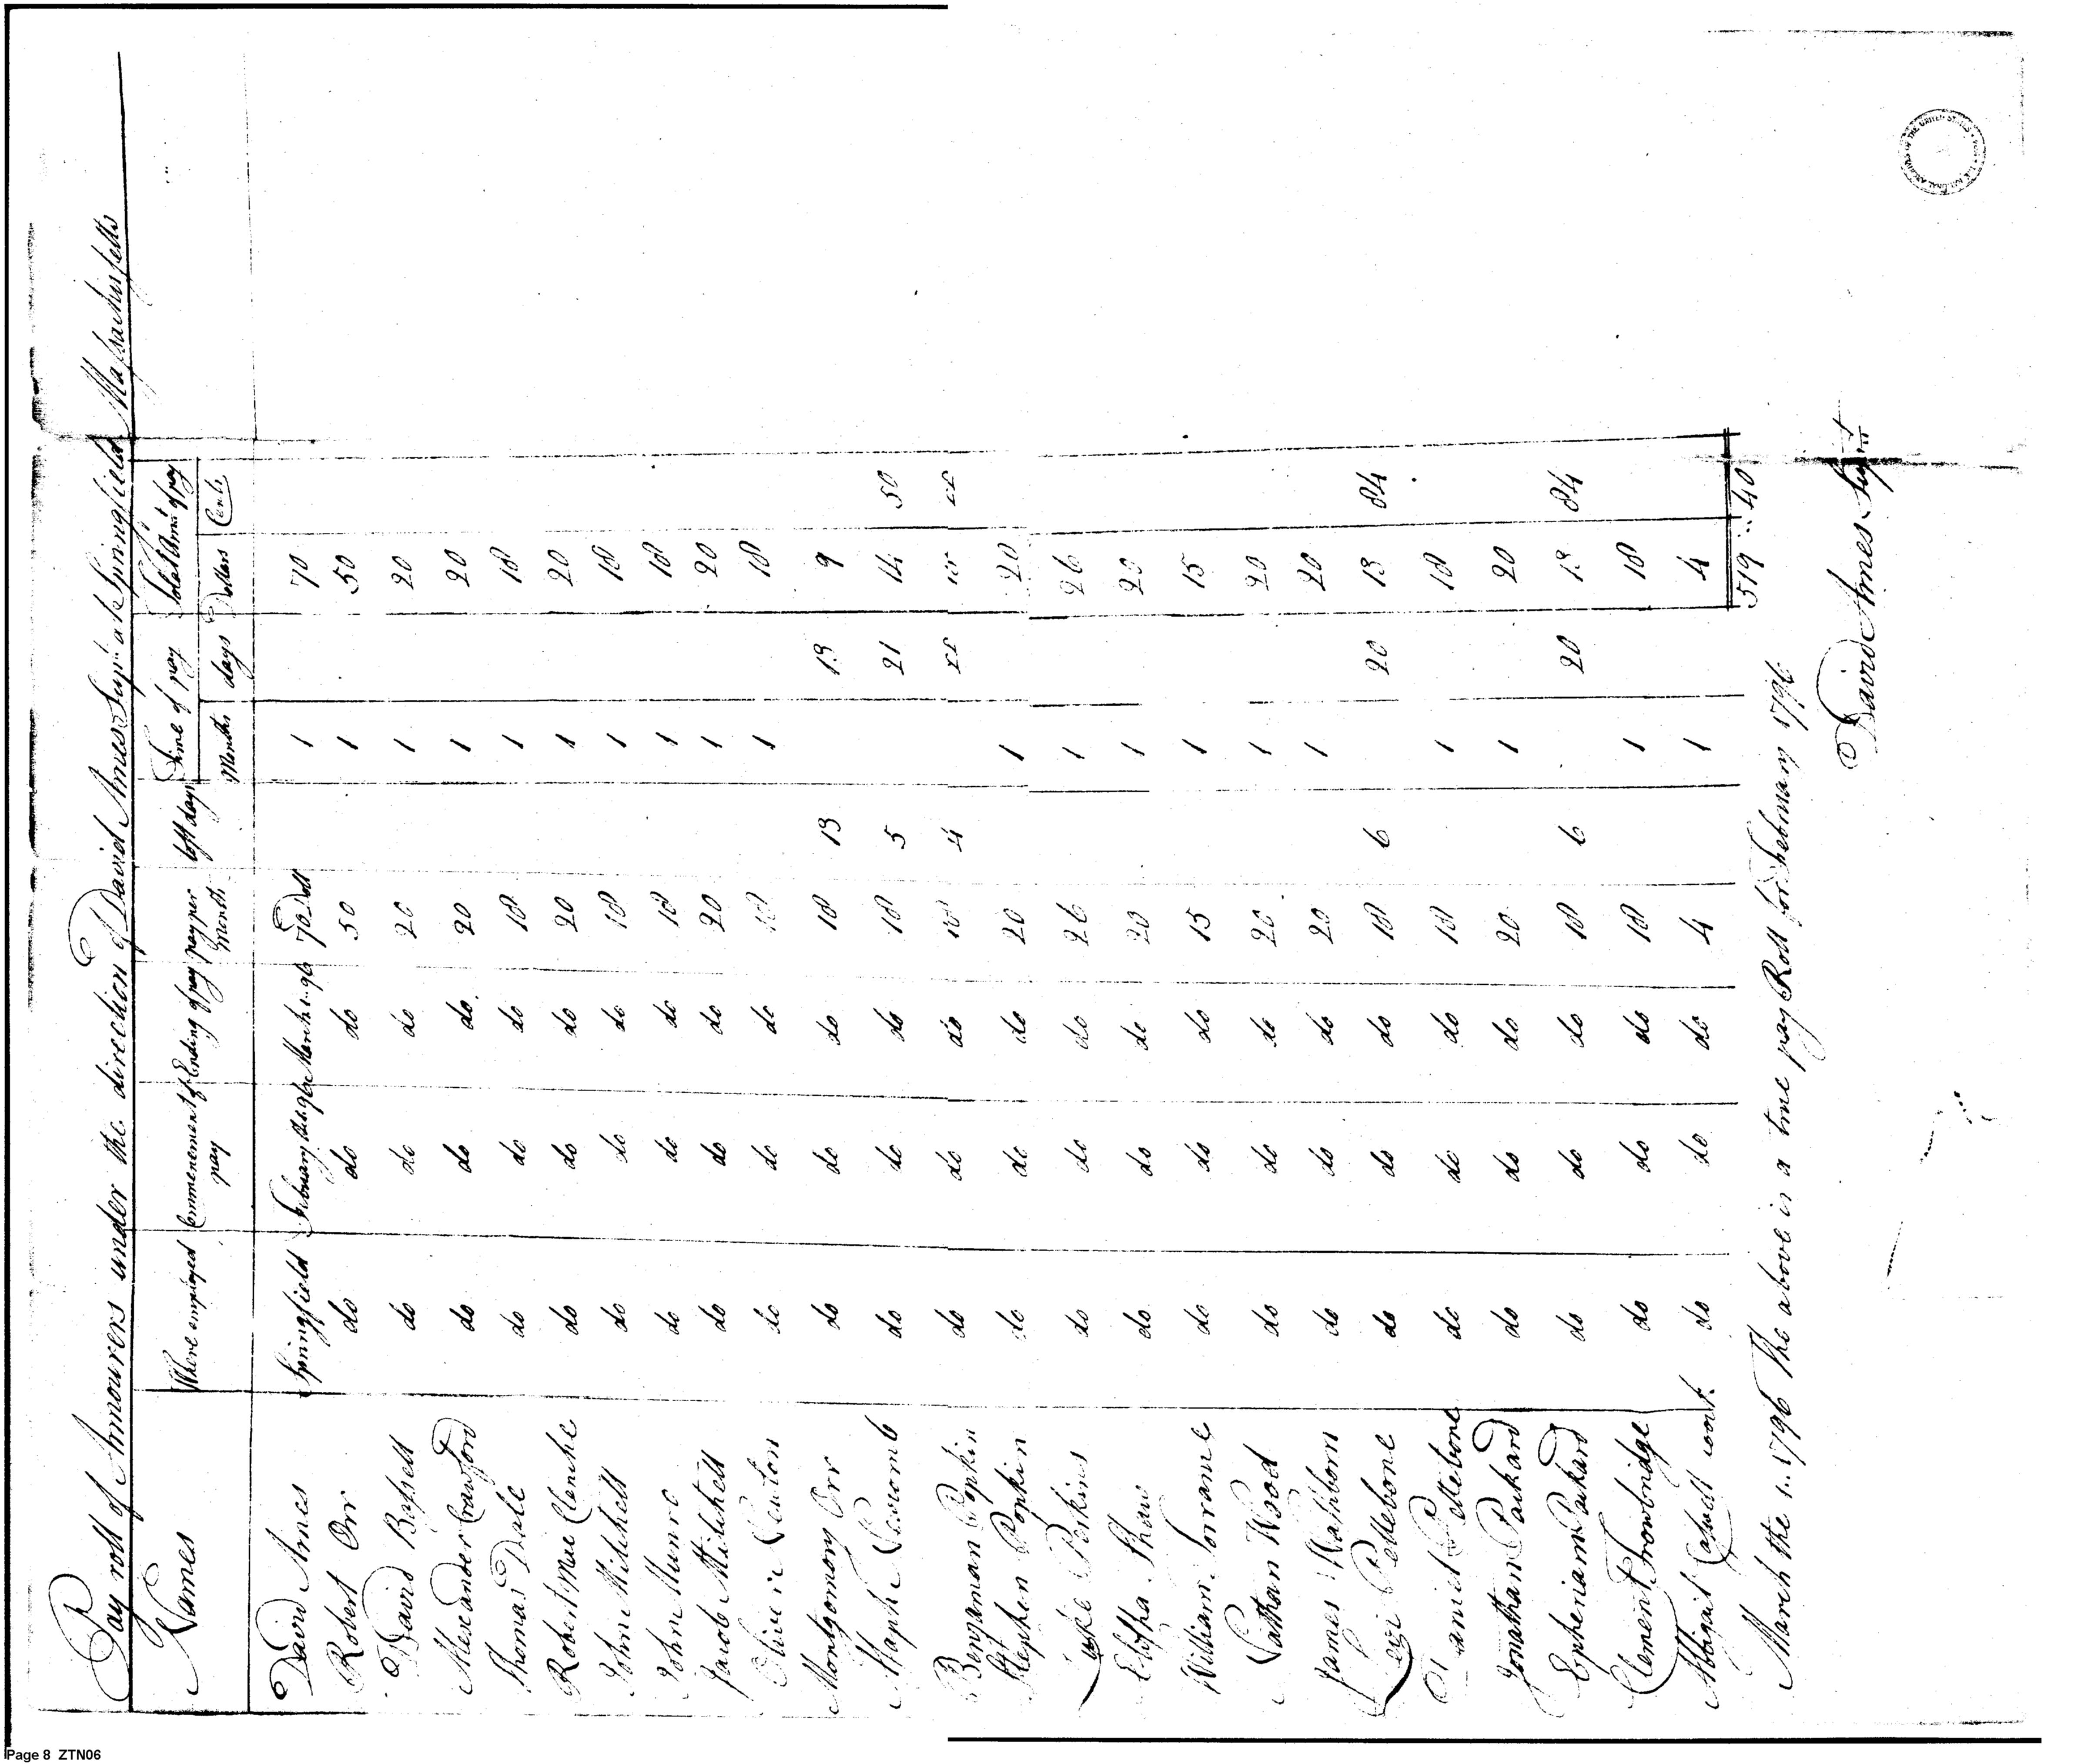 Pay roll of Armourers under the direction of David Ames Supt at Springfield Massachusetts
Names Where employed Commencement of pay Ending of pay pay per Month lost days Time of pay Total Amt of pay
Months days Dollars Cents
David Ames Springfield February 96 March 1 96 70 Doll 1 70
Robert Orr do do do 50 1 50
David Bassett do do do 20 1 20
Alexander Crawford do do do 20 1 20
Thomas Dale do do do 18 1 18
Robert Mac Clenche do do do 20 1 20
John Mitchell do do do 18 1 18
John Munro do do do 18 1 18
Jacob Mitchell do do do 20 1 20
Oliver Newton do do do 18 1 18
Montgomory Orr do do do 18 13 13 9
do do do 18 5 21 14 50
Benjaman Popkin do do do 18 4 22 15 22
Stephen Popkin do do do 20 1 20
Luke Perkins do do do 26 1 26
Elipha Shaw do do do 20 1 20
William Lorrame do do do 15 1 15
Nathan Wood do do do 20 1 20
James Rathborn do do do 20 1 20
Levi Pettebone do do do 18 6 20 13 84
Daniel Pettebone do do do 18 1 18
Jonathan Packard do do do 20 1 20
Epheriam Packard do do do 18 6 20 13 84
Clement Trowbridge do do do 18 1 18
Abigail cook do do do 4 1 4
519 40
March the 1 1796 The above is a true pay Roll for Febuary 1796
David Ames Supt
Page 8 ZTN06